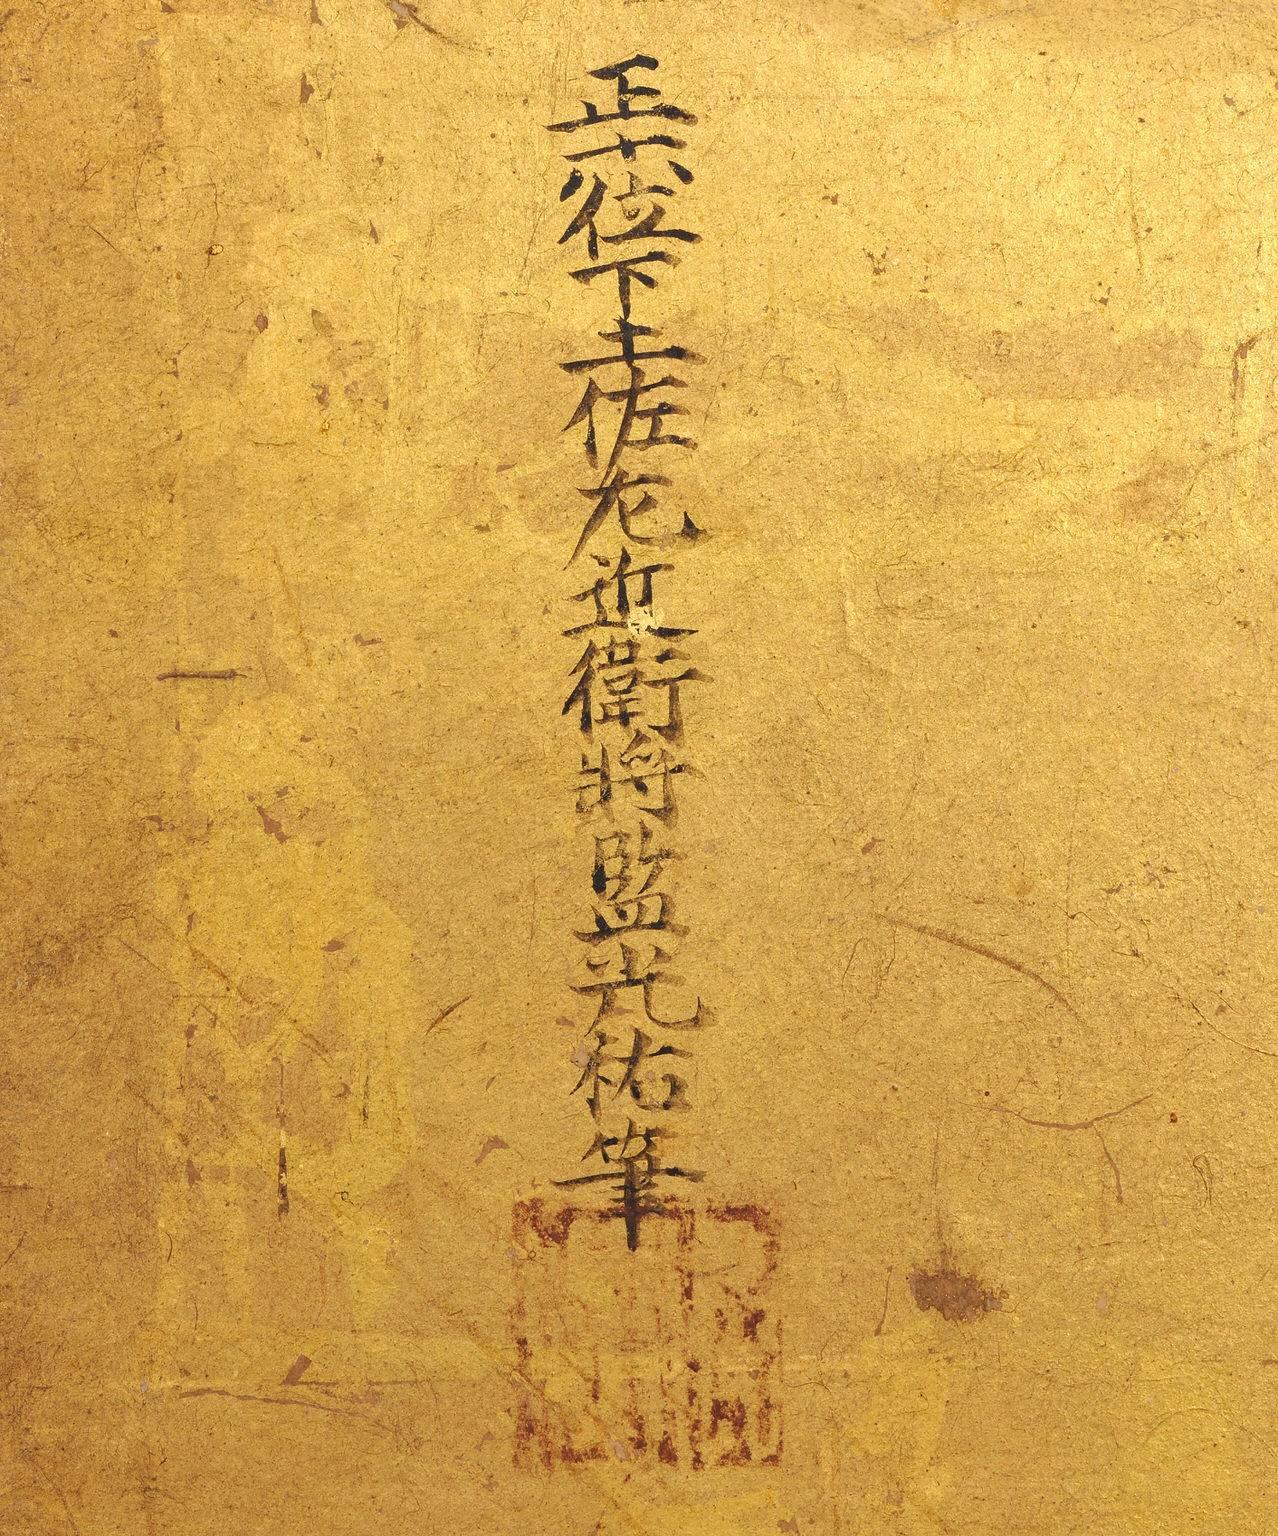 正六位下土佐左近衛將監光祐筆